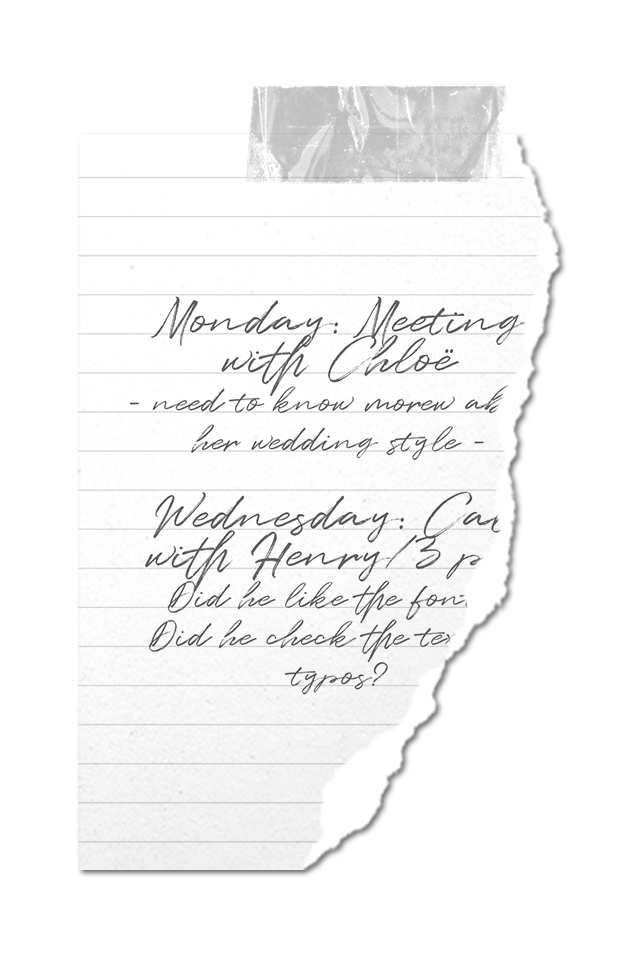 Monday: Meeting
with Chloë
- need to know morew
her wedding style -
Wednesday:
with Henry/3
Did he like the
Did he check the
typos?